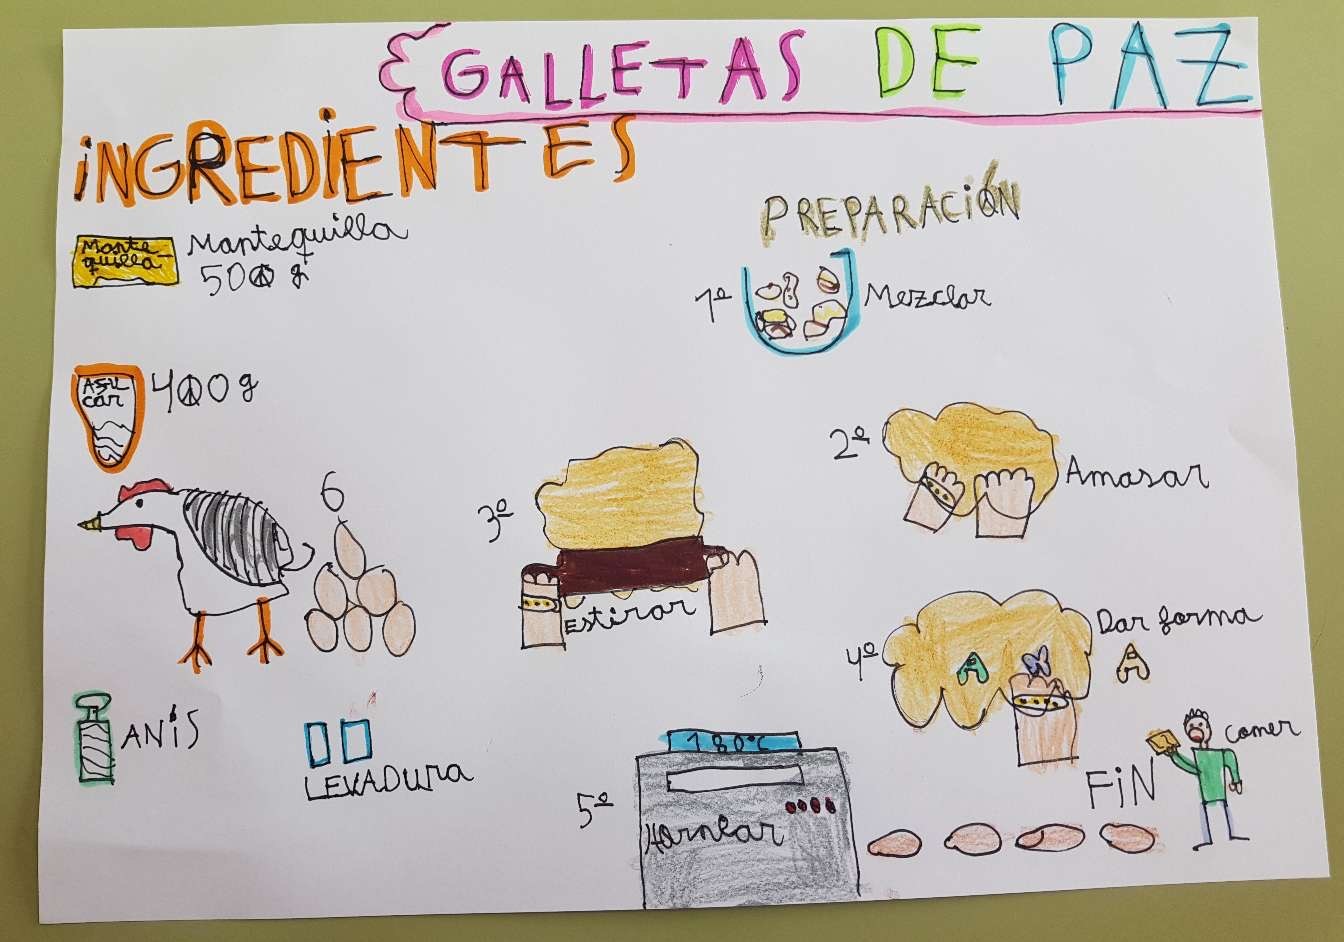 GALLETAS DE PAZ
iNGREDiENTES
Mante-
quilla
Mantequilla
500 g
ASU
cár
400 g
6
ANíS
LEVADura
PREPARACiÓN
1º Mezclar
2º Amasar
3º Estirar
4º Dar forma
A A
5º 180ºC
Hornear
comer
FiN